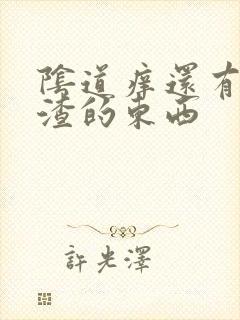 陰道痒還有
渣的東西
許光澤